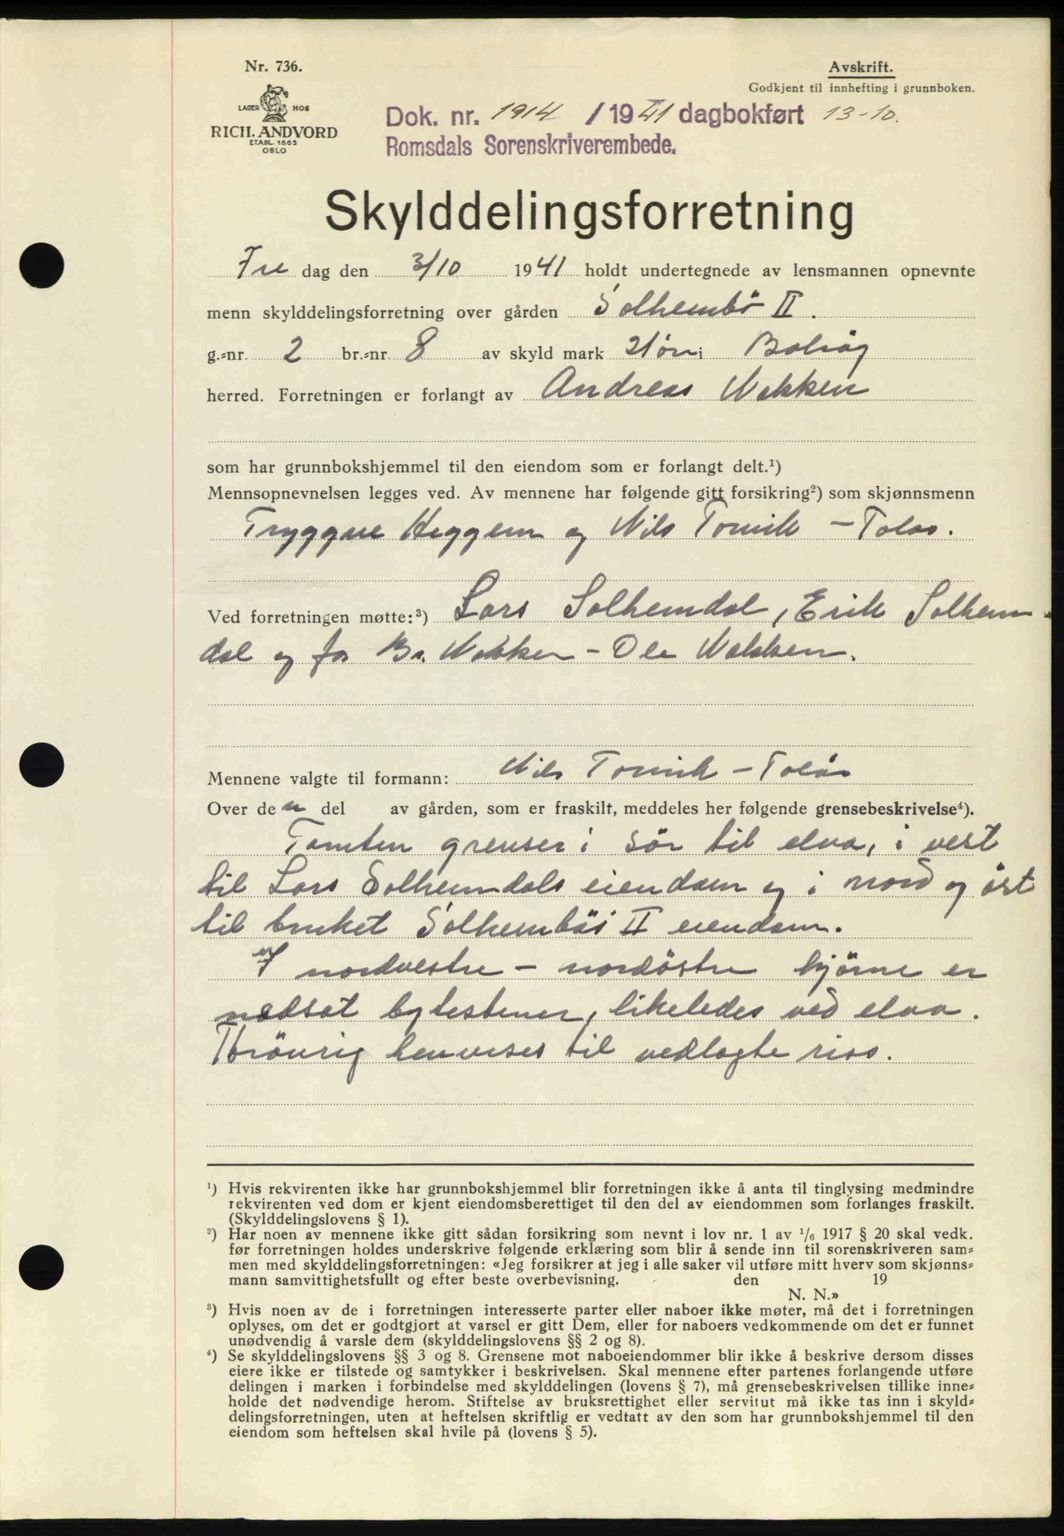 Nr. 736.
LAGER HOS
RICH. ANDVORD
ETABL. 1865
OSLO
Avskrift.
Godkjent til innhefting i grunnboken.
Dok. nr. 1914 / 1941 dagbokført 13-10.
Romsdals Sorenskriverembede.
Skylddelingsforretning
Fre dag den 3/10 1941 holdt undertegnede av lensmannen opnevnte
menn skylddelingsforretning over gården Solhembö II.
g.=nr. 2 br.=nr. 8 av skyld mark i Bolsöy
herred. Forretningen er forlangt av Andreas Nakken
som har grunnbokshjemmel til den eiendom som er forlangt delt.¹)
Mennsopnevnelsen legges ved. Av mennene har følgende gitt forsikring²) som skjønnsmenn
Tryggve Heggem og Nils Torvik – Tolås.
Ved forretningen møtte:³) Lars Solhemdal, Erik Solhem-
dal og for Br. Nakken – Ole Nakken.
Mennene valgte til formann: Nils Torvik – Tolås
Over den del av gården, som er fraskilt, meddeles her følgende grensebeskrivelse⁴).
Tomten grenser i sör til elva, i vest
til Lars Solhemdals eiendom og i nord og öst
til bruket Solhembös II eiendom.
I nordvestre – nordöstre hjörne er
nedsat bytesteiner, likeledes ved elva.
Forövrig henvises til vedlagte riss.
¹) Hvis rekvirenten ikke har grunnbokshjemmel blir forretningen ikke å anta til tinglysing medmindre
rekvirenten ved dom er kjent eiendomsberettiget til den del av eiendommen som forlanges fraskilt.
(Skylddelingslovens § 1).
²) Har noen av mennene ikke gitt sådan forsikring som nevnt i lov nr. 1 av ¹/₆ 1917 § 20 skal vedk.
før forretningen holdes underskrive følgende erklæring som blir å sende inn til sorenskriveren sam=
men med skylddelingsforretningen: «Jeg forsikrer at jeg i alle saker vil utføre mitt hverv som skjønns=
mann samvittighetsfullt og efter beste overbevisning. den 19
N. N.»
³) Hvis noen av de i forretningen interesserte parter eller naboer ikke møter, må det i forretningen
oplyses, om det er godtgjort at varsel er gitt Dem, eller for naboers vedkommende om det er funnet
unødvendig å varsle dem (skylddelingslovens §§ 2 og 8).
⁴) Se skylddelingslovens §§ 3 og 8. Grensene mot naboeiendommer blir ikke å beskrive dersom disses
eiere ikke er tilstede og samtykker i beskrivelsen. Skal mennene efter partenes forlangende utføre
delingen i marken i forbindelse med skylddelingen (lovens § 7), må grensebeskrivelsen tillike inne=
holde det nødvendige herom. Stiftelse av bruksrettighet eller servitut må ikke tas inn i skyld=
delingsforretningen, uten at heftelsen skriftlig er vedtatt av den som har grunnbokshjemmel til den
eiendom som heftelsen skal hvile på (lovens § 5).